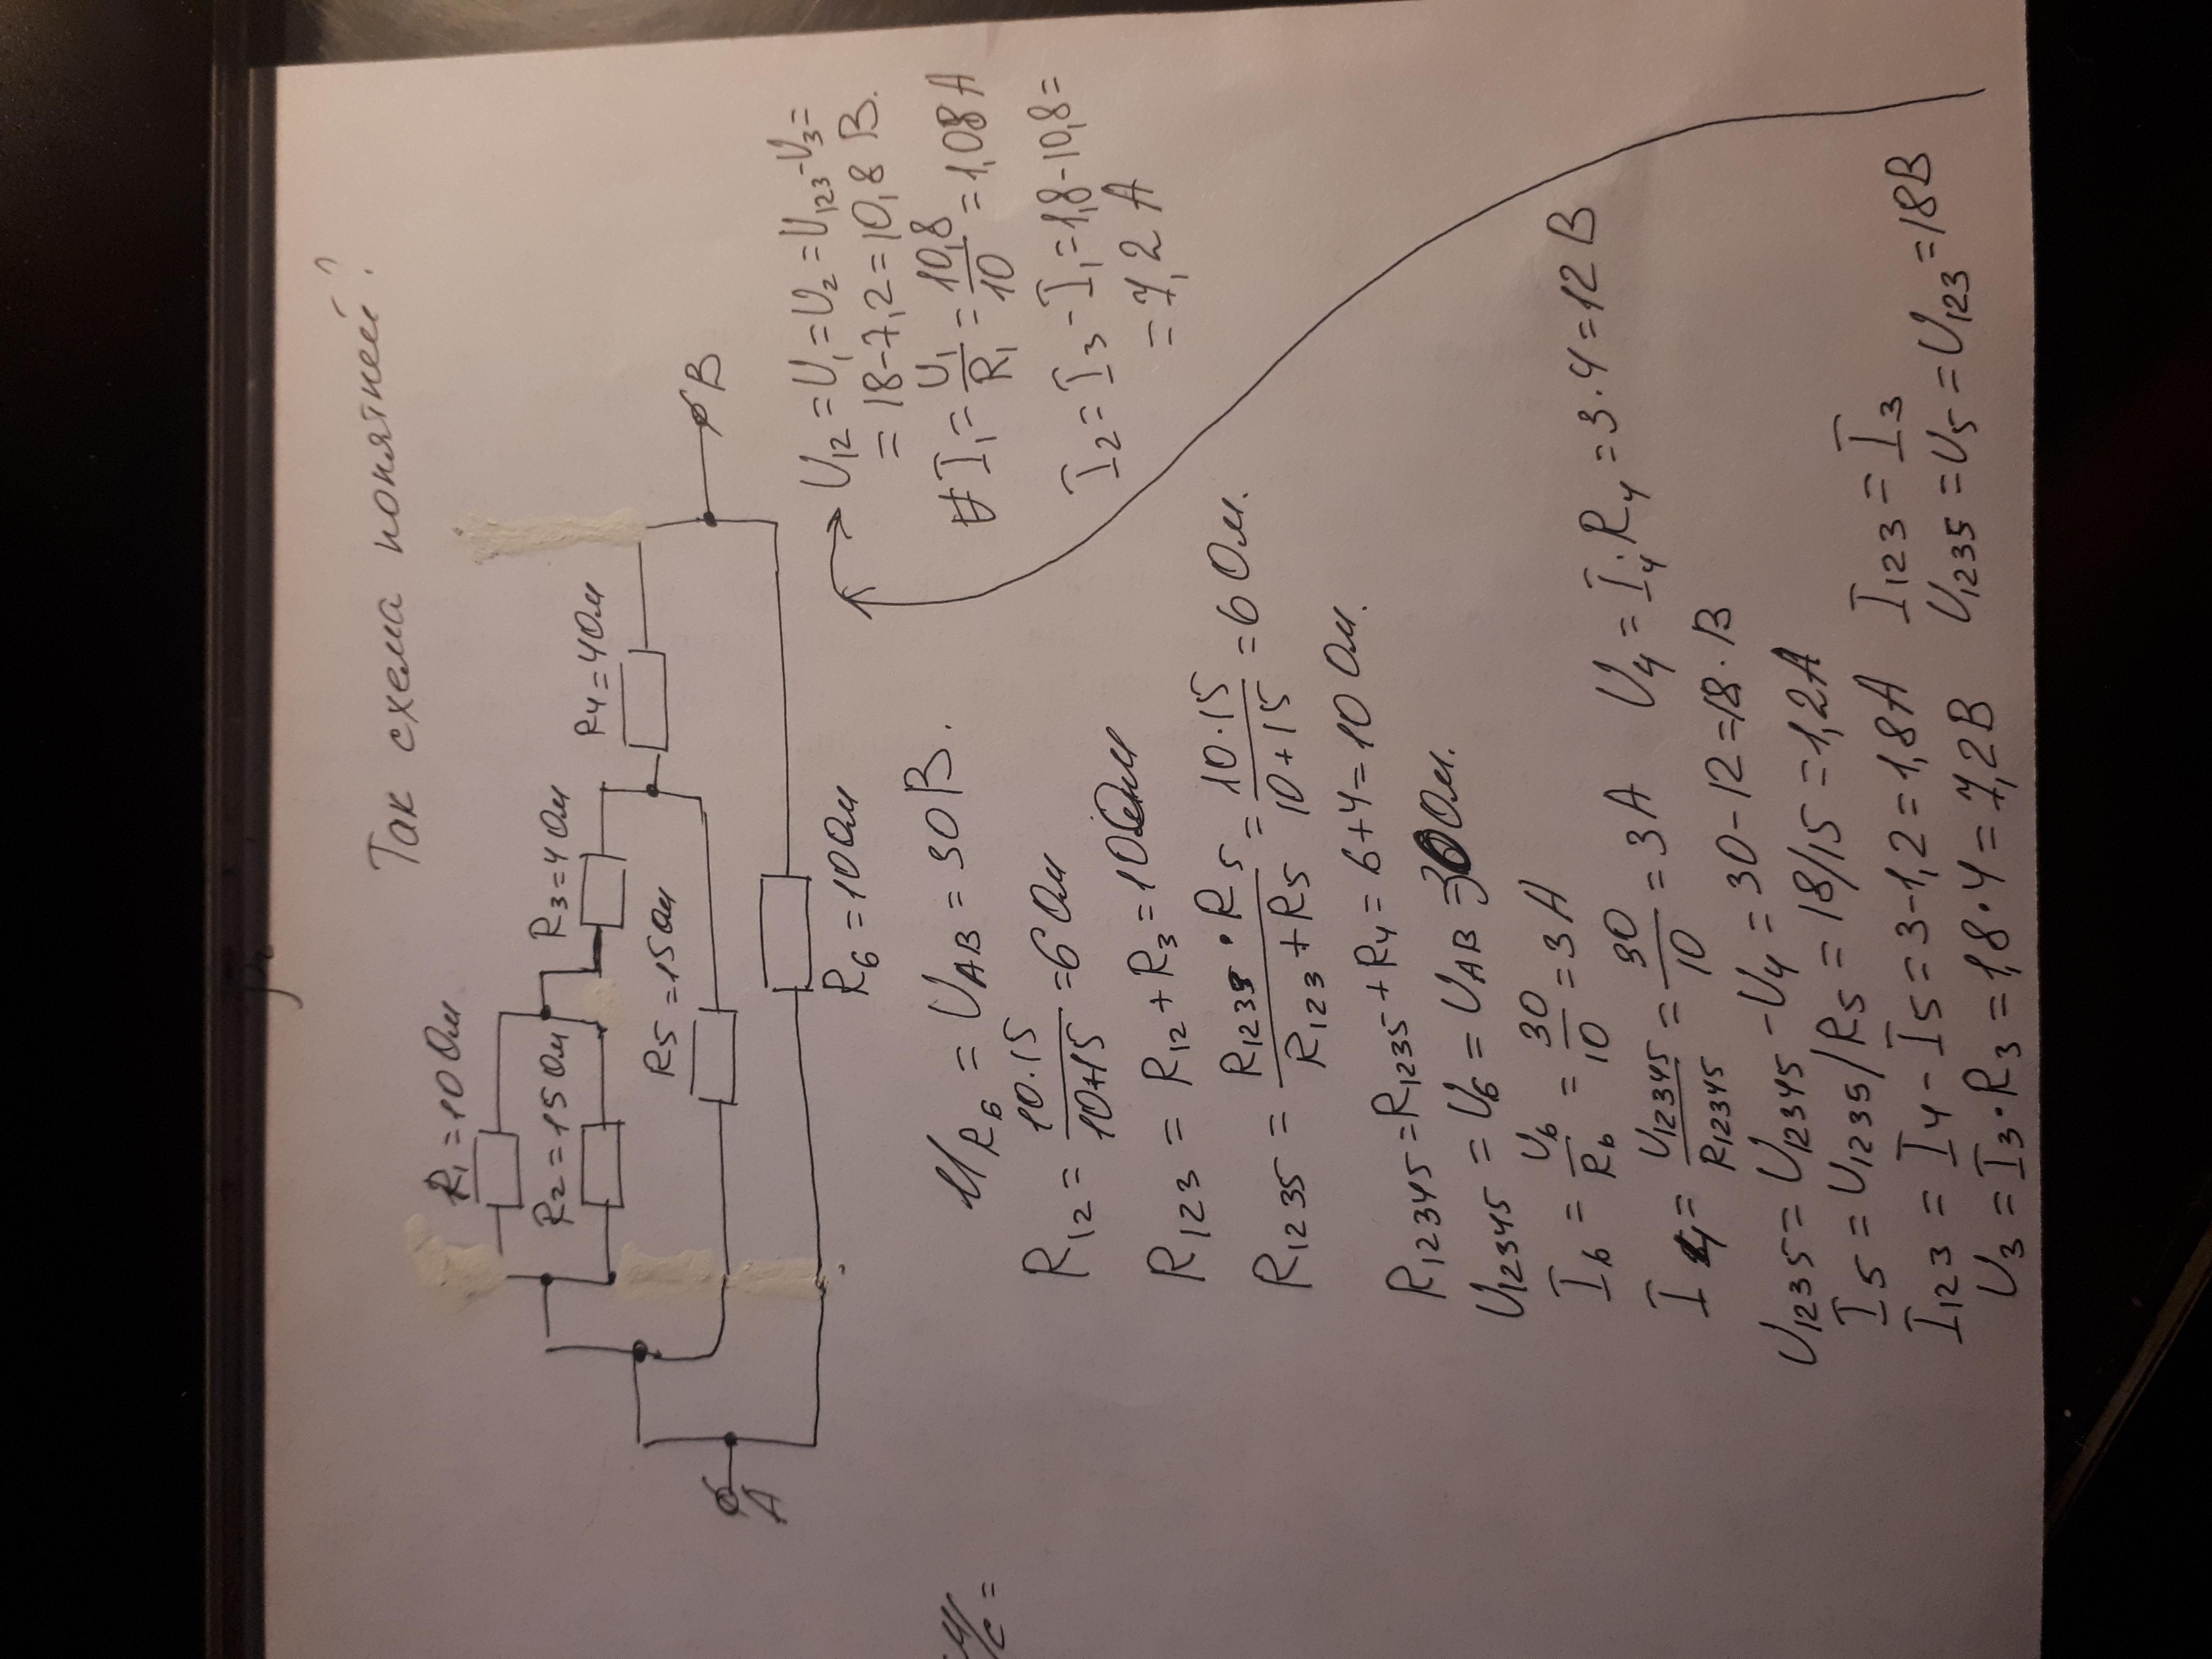 Так схема понятней?
R₁=10 Ом
R₂=15 Ом
R₃=4 Ом
R₄=4 Ом
R₅=15 Ом
R₆=10 Ом
A
B
U_R₆ = U_AB = 30 В.
R₁₂ = 10·15/10+15 = 6 Ом
R₁₂₃ = R₁₂ + R₃ = 10 Ом
R₁₂₃₅ = R₁₂₃·R₅/R₁₂₃+R₅ = 10·15/10+15 = 6 Ом.
R₁₂₃₄₅ = R₁₂₃₅ + R₄ = 6+4 = 10 Ом.
U₁₂₃₄₅ = U₆ = U_AB = 30 Ом.
I₆ = U₆/R₆ = 30/10 = 3 А
I₄ = U₁₂₃₄₅/R₁₂₃₄₅ = 30/10 = 3 А U₄ = I₄·R₄ = 3·4 = 12 В
U₁₂₃₅ = U₁₂₃₄₅ - U₄ = 30-12 = 18·В
I₅ = U₁₂₃₅/R₅ = 18/15 = 1,2 А
I₁₂₃ = I₄ - I₅ = 3-1,2 = 1,8 А I₁₂₃ = I₃
U₃ = I₃·R₃ = 1,8·4 = 7,2 В U₁₂₃₅ = U₅ = U₁₂₃ = 18 В
U₁₂ = U₁ = U₂ = U₁₂₃ - U₃ =
= 18-7,2 = 10,8 В.
I₁ = U₁/R₁ = 10,8/10 = 1,08 А
I₂ = I₃ - I₁ = 1,8-10,8 =
= 7,2 А